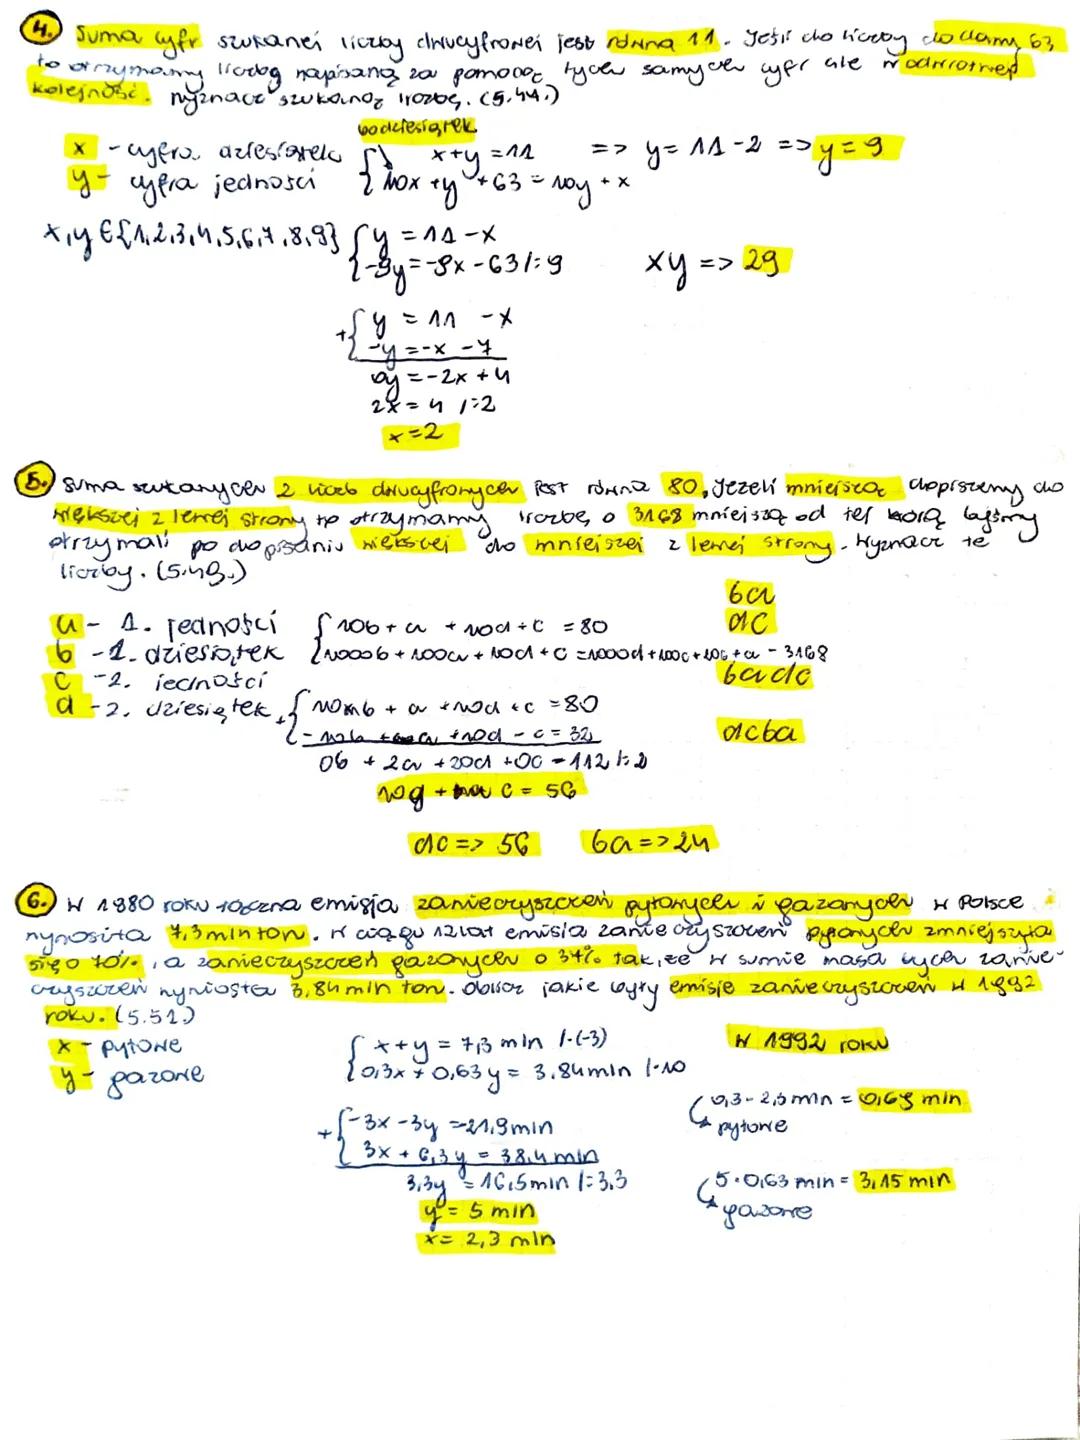 4. Suma cyfr szukanej liczby dwucyfrowej jest równa 11. Jeśli do liczby dodamy 63
to otrzymamy liczbę napisaną za pomocą tych samych cyfr ale w odwrotnej
kolejność. Wyznacz szukaną liczbę. (5.44.)
bo dziesiątek
x - cyfra dziesiątek
x+y=11 => y=11-2 => y=9
y - cyfra jedności
10x+y+63=10y+x
x,y∈{1,2,3,4,5,6,7,8,9}
y=11-x
-9y=-9x-63 /:9
xy => 29
+ y=11-x
-y=-x-7
0y=-2x+4
2x=4 /:2
x=2
5. Suma szukanych 2 liczb dwucyfrowych jest równa 80. Jeżeli mniejszą dopiszemy do
większej z lewej strony to otrzymamy liczbę o 3168 mniejszą od tej którą byśmy
otrzymali po dopisaniu większej do mniejszej z lewej strony. Wyznacz te
liczby. (5.49.)
ba
a - 1. jedności
10b+a+10d+c=80
dc
b - 1. dziesiątek
1000b+100a+10d+c=1000d+100c+10b+a-3168
c - 2. jedności
badc
d - 2. dziesiątek
+ 10b+a+10d+c=80
dcba
+10d-c=32
0b+2a+20d+0c=112 /:2
c=56
dc=>56 ba=>24
6. W 1980 roku roczna emisja zanieczyszczeń pyłowych i gazowych w Polsce
wynosiła 7,3 mln ton. W ciągu 12 lat emisja zanieczyszczeń pyłowych zmniejszyła
się o 70%, a zanieczyszczeń gazowych o 37% tak, że w sumie masa tych zanie-
czyszczeń wyniosła 3,84 mln ton. Oblicz jakie były emisje zanieczyszczeń w 1992
roku. (5.51.)
x - pyłowe
x+y=7,3 mln /·(-3)
W 1992 roku
y - gazowe
0,3x+0,63y=3.84mln /·10
0,3·2,3mln=0,69 mln
pyłowe
+ -3x-3y=-21,9mln
3x+6,3y=38,4mln
3,3y=16,5mln /:3,3
5·0,63 mln=3,15 mln
gazowe
y=5 mln
x=2,3 mln